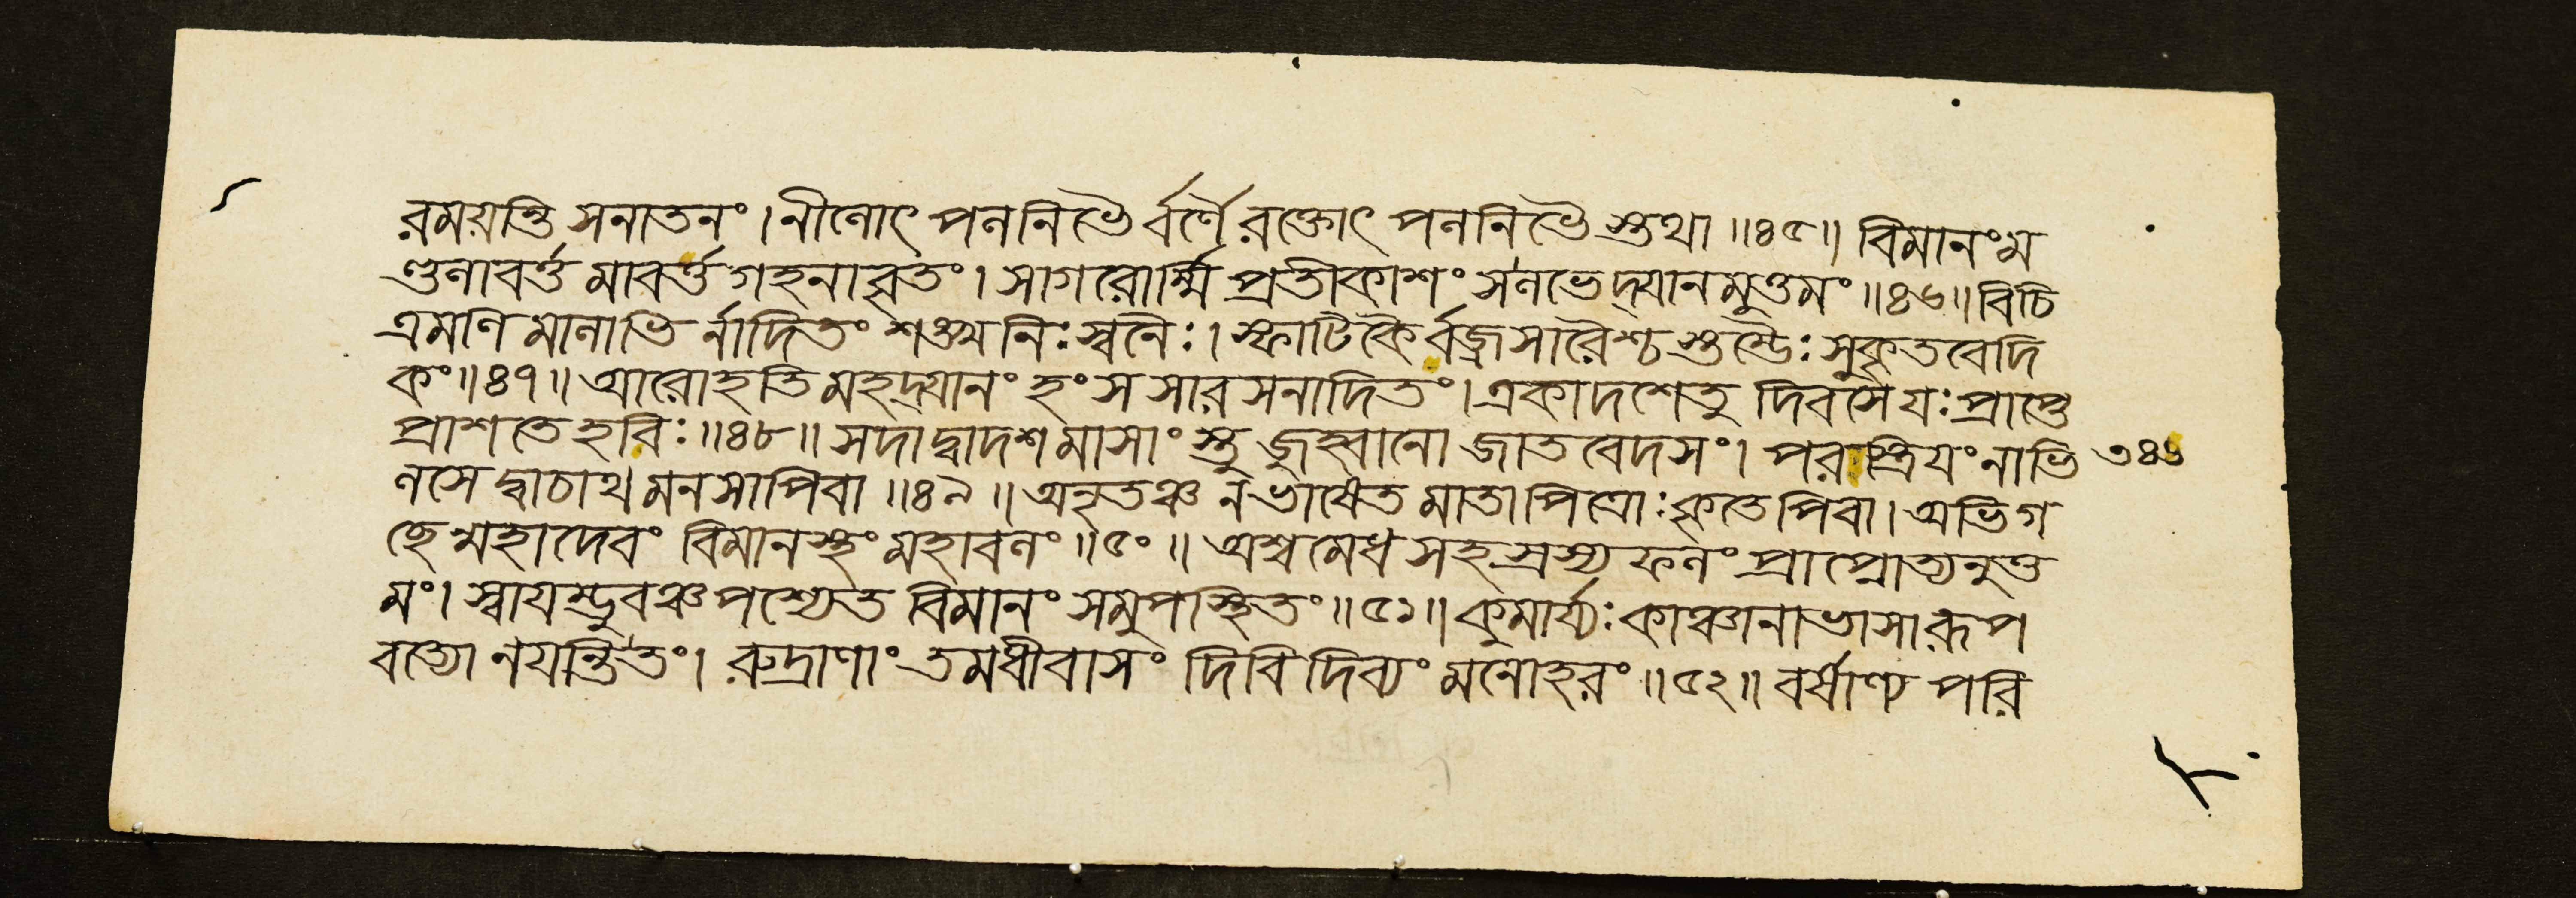 রময়ন্তি সনাতনং। নীলোৎপলনিভৈর্বর্ণৈ রক্তোৎপলনিভৈস্তথা॥৪৫॥ বিমানং ম
ণ্ডলাবর্ত্তমাবর্ত্তগহনাবৃতং। সাগরোর্ম্মি প্রতীকাশং স লভেদ্যানমুত্তমং॥৪৬॥ বিচি
ত্রমণিমালাভির্নাদিতং শঙ্খনিঃস্বনৈঃ। স্ফাটিকৈর্বজ্রসারৈশ্চ স্তম্ভৈঃ সুকৃতবেদি
কং॥৪৭॥ আরোহতি মহদ্যানং হংসসারসনাদিতং। একাদশে তু দিবসে যঃ প্রাপ্তে
প্রাশতে হবিঃ॥৪৮॥ সদা দ্বাদশমাসাংস্তু জুহ্বানো জাতবেদসং। পরস্ত্রিয়ং নাভি
লসেদ্বাচাথ মনসাপি বা॥৪৯॥ অনৃতঞ্চ ন ভাষেত মাতাপিত্রোঃ কৃতেপি বা। অভিগ
চ্ছেন্মহাদেবং বিমানস্থং মহাবলং॥৫০॥ অশ্বমেধসহস্রস্য ফলং প্রাপ্নোত্যনুত্ত
মং। স্বায়ম্ভুবঞ্চ পশ্যেত বিমানং সমুপস্থিতং॥৫১॥ কুমার্য্যঃ কাঞ্চনাভাসা রূপ
বত্যো নয়ন্তি তং। রুদ্রাণাং তমধীবাসং দিবি দিব্যং মনোহরং॥৫২॥ বর্ষাণ্য পরি
৩৪৬